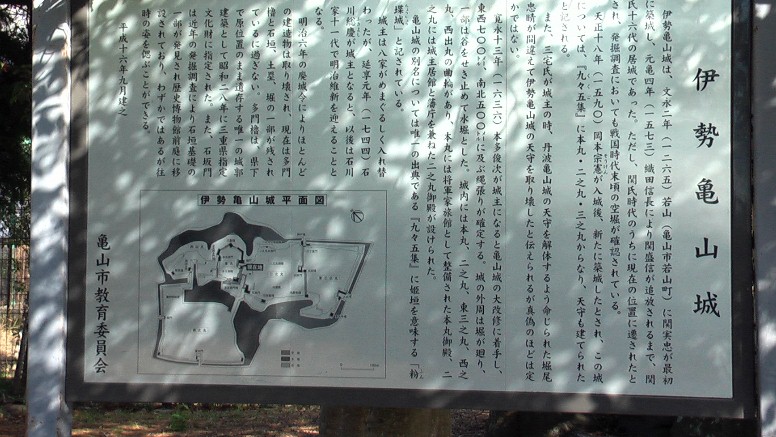 伊勢亀山城
伊勢亀山城は、文永二年（一二六五）若山（亀山市若山町）に関実忠が最初
に築城し、元亀四年（一五七三）織田信長により関盛信が追放されるまで、関
氏十六代の居城であった。ただし、関氏時代のうちに現在の位置に遷されたと
され、発掘調査においても戦国時代末頃の空堀が確認されている。
天正十八年（一五九〇）岡本宗憲が入城後、新たに築城したとされ、この城
については、『九々五集』に本丸・二之丸・三之丸からなり、天守も建てられた
と記される。
また、三宅氏が城主の時、丹波亀山城の天守を解体するよう命じられた堀尾
忠晴が間違えて伊勢亀山城の天守を取り壊したと伝えられるが真偽のほどは定
かではない。
寛永十三年（一六三六）本多俊次が城主になると亀山城の大改修に着手し、
東西七〇〇ｍ、南北五〇〇ｍに及ぶ縄張りが確定する。城の外周は堀が廻り、
一部は谷をせき止めて水堀とした。城内には本丸、二之丸、東三之丸、西之
丸、西出丸の曲輪があり、本丸には将軍家旅館として整備された本丸御殿、二
之丸には城主居館と藩庁を兼ねた二之丸御殿が設けられた。
亀山城の別名については唯一の出典である『九々五集』に姫垣を意味する「粉
堞城」と記されている。
城主は八家がめまぐるしく入れ替
わったが、延享元年（一七四四）石
川総慶が城主となると、以後は石川
家十一代で明治維新を迎えることと
なる。
明治六年の廃城令によりほとんど
の建造物は取り壊され、現在は多門
櫓と石垣、土塁、堀の一部が残され
ているに過ぎない。多門櫓は、県下
で原位置のまま遺存する唯一の城郭
建築として昭和二八年に三重県指定
文化財に指定された。また、石坂門
は近年の発掘調査により石垣基礎の
一部が発見され歴史博物館前庭に移
設されており、わずかではあるが往
時の姿を偲ぶことができる。
平成十六年九月建之
伊勢亀山城平面図
亀山市教育委員会